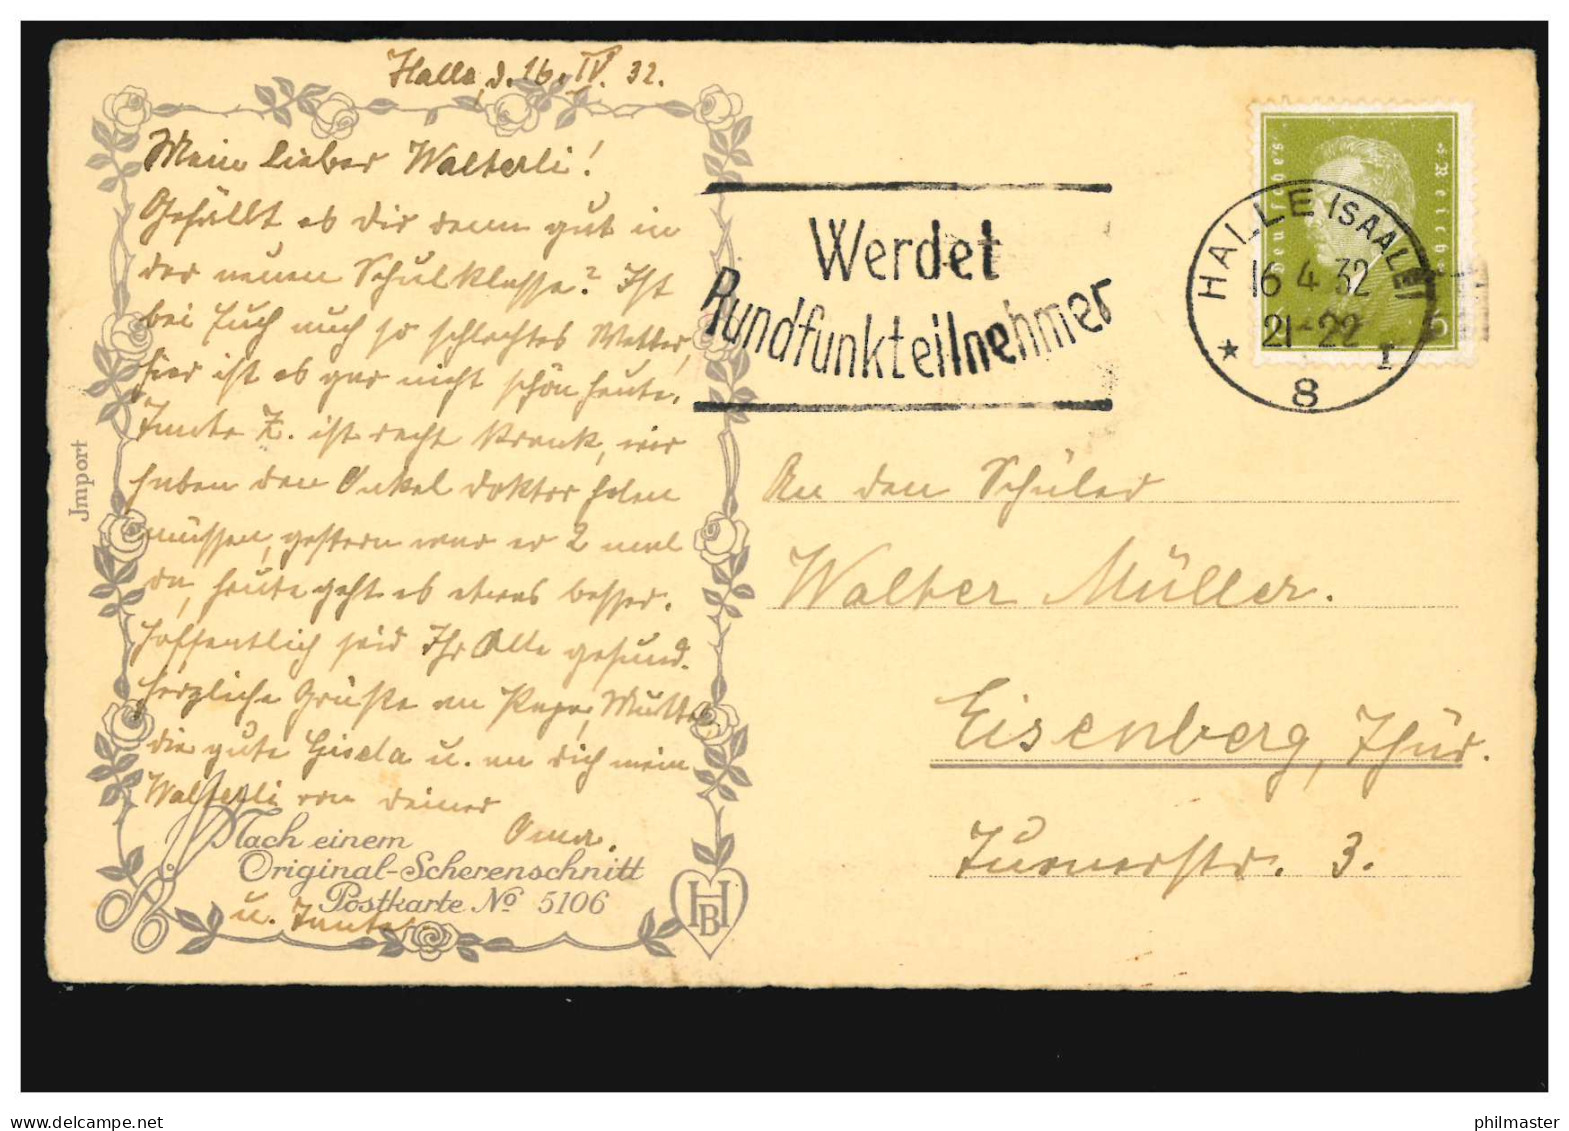 Halle, d. 16. IV. 32.
Mein lieber Walterli!
Gefällt es dir denn gut in
der neuen Schulklasse? Ist
bei Euch auch so schlechtes Wetter,
hier ist es gar nicht schön heute.
Tante Z. ist recht krank, wir
haben den Onkel doktor holen
müssen, gestern war er 2 mal
da, heute geht es etwas besser.
Hoffentlich seid Ihr Alle gesund.
herzliche Grüße an Papa, Mutter,
die gute Gisela u. an dich mein
Walterli von deiner
Oma.
u. Tante
Nach einem
Original-Scherenschnitt
Postkarte No 5106
HBH
Jmport
Werdet
Rundfunkteilnehmer
HALLE (SAALE)
16 4 32
21-22
* 8 r
Deutsches Reich
6
An den Schüler
Walter Müller.
Eisenberg, Thür.
Turnerstr. 3.
philmaster